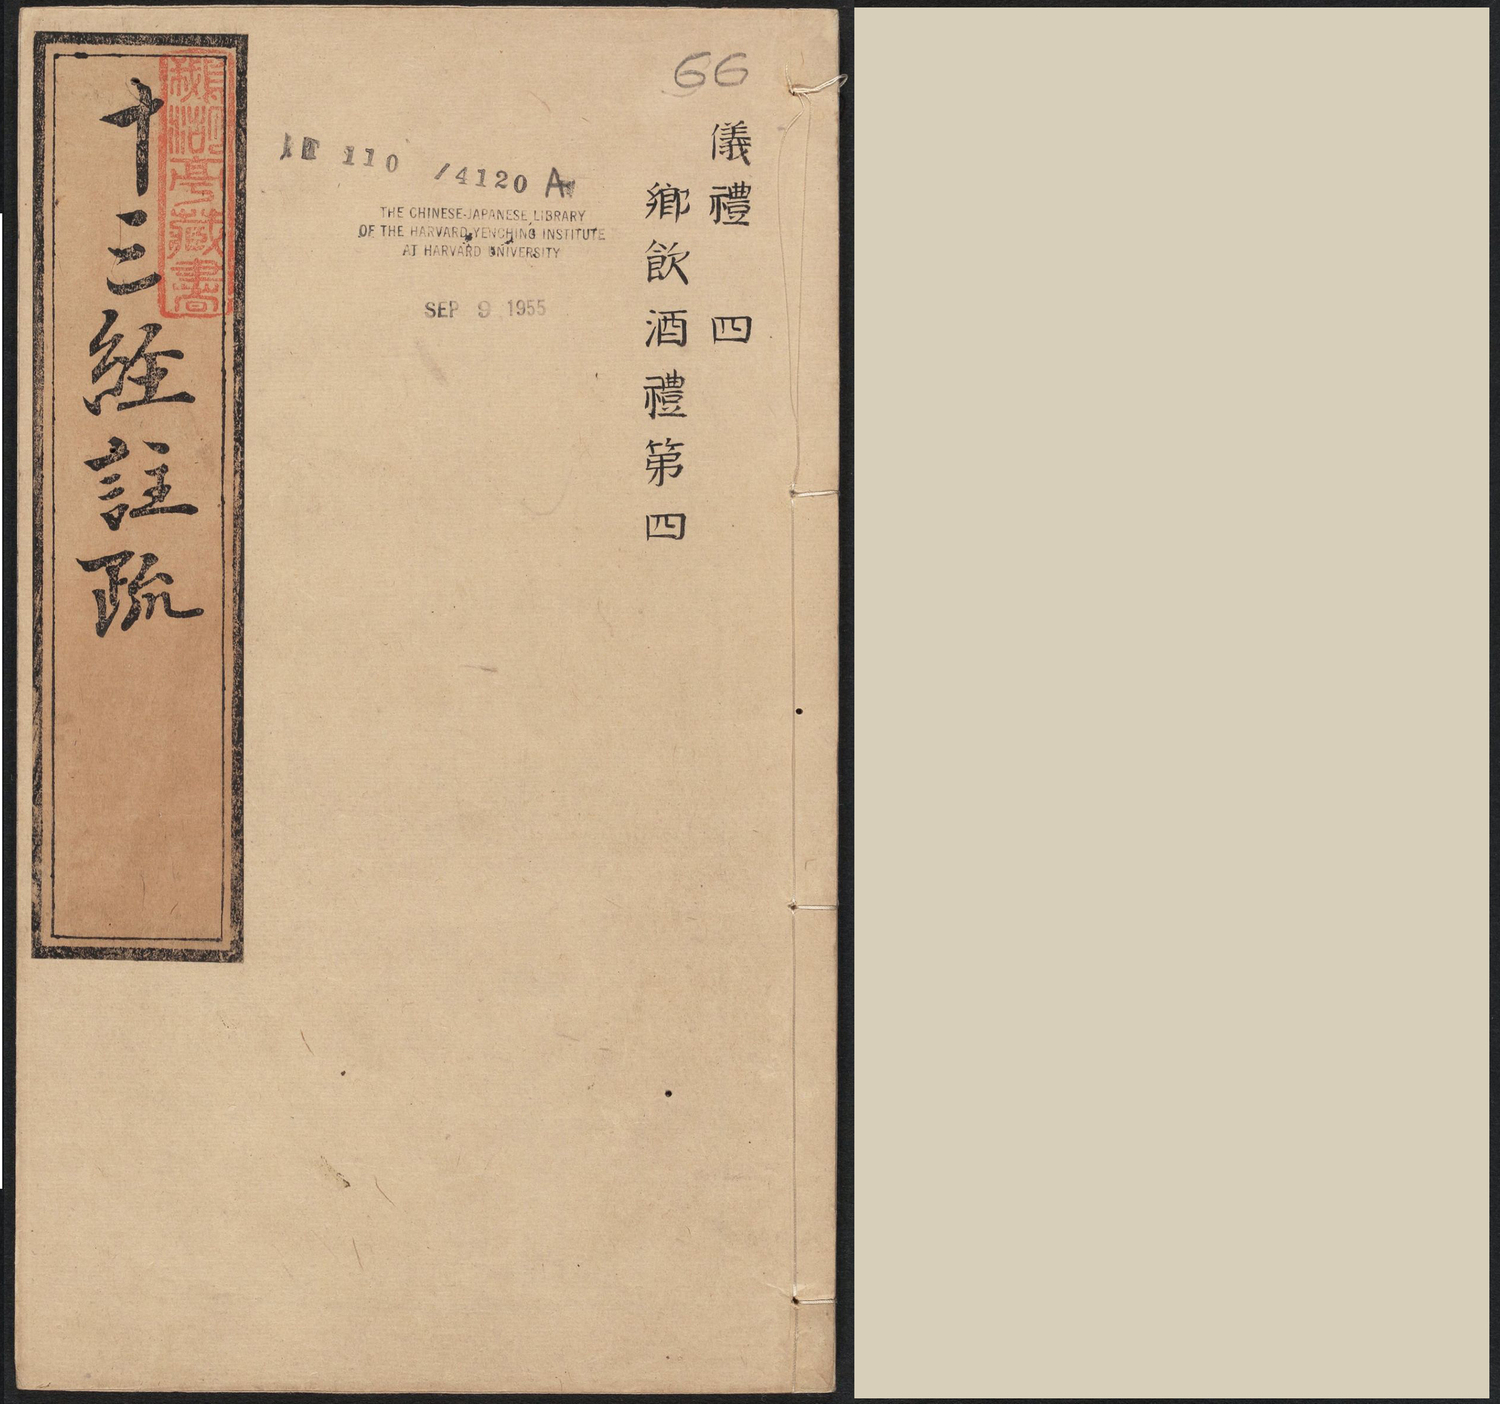 66
儀禮 四
鄉飲酒禮第四
110 /4120 A
THE CHINESE-JAPANESE LIBRARY
OF THE HARVARD-YENCHING INSTITUTE
AT HARVARD UNIVERSITY
SEP 9 1955
十三經註疏
湖亭藏書